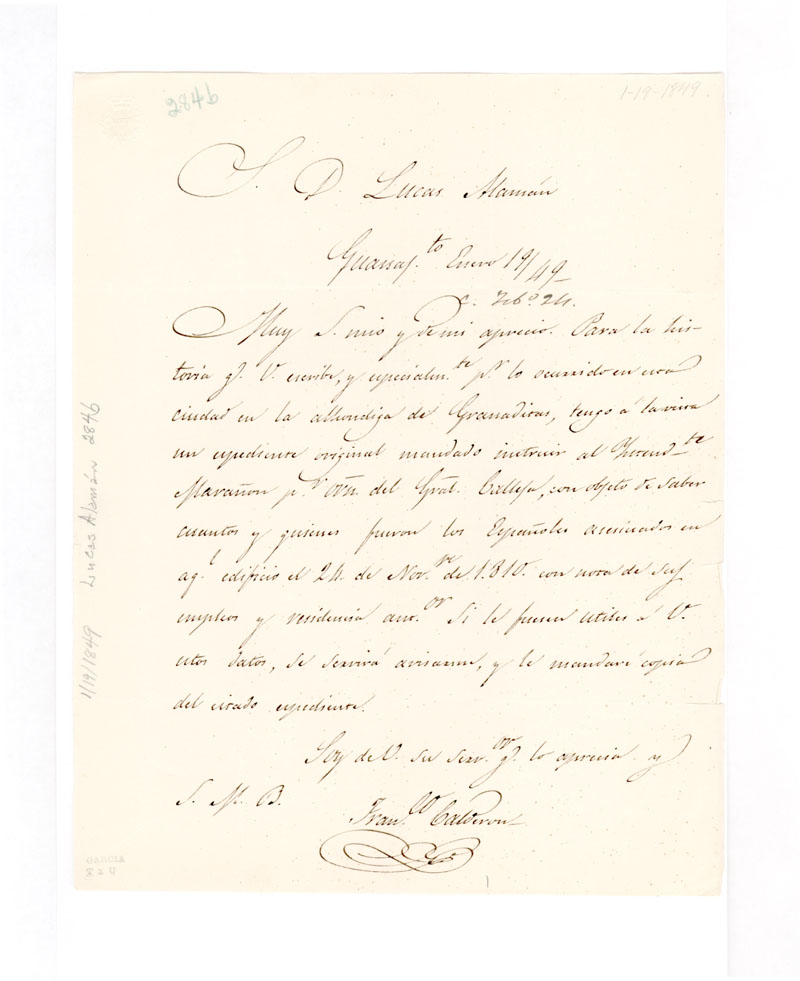 2846
1-19-1849.
S. D. Lucas Alamán
Guanaj.to Enero 19/49
c. Feb.o 24.
Muy S. mio y de mi aprecio. Para la his-
toria q.e V. escribe, y especialm.te p.r lo ocurrido en esa
ciudad en la alhondiga de Granaditas, tengo á la vista
un espediente original mandado instruir al Yntend.te
Marañon p.r orn. del Gral. Calleja, con objeto de saber
cuantos y quienes fueron los Españoles asesinados en
aq.l edificio el 24. de Nov.re de 1.810. con nota de sus
empleos y residencia ant.or Si le fuesen utiles a V.
estos datos, se servirá avisarme, y le mandaré copia
del citado espediente.
Soy de V. su serv.or q.e lo aprecia y
S. M. B.
Fran.co Calderon
1/19/1849 Lucas Alamán 2846
GARCIA
824